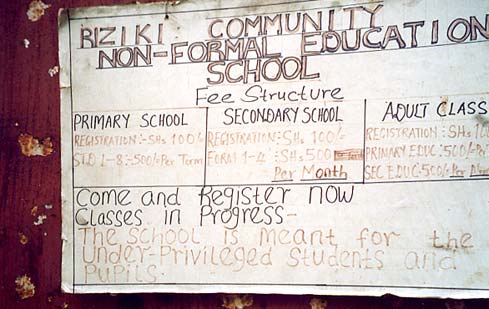 RIZIKI COMMUNITY
NON-FORMAL EDUCATION
SCHOOL
Fee Structure
PRIMARY SCHOOL
REGISTRATION:-SHS 100/-
STD 1-8:-500/-Per Term
SECONDARY SCHOOL
REGISTRATION:-SHS 100/-
FORM 1-4:SHS 500
Per Month
ADULT CLASS
REGISTRATION:SHS 100
PRIMARY EDUC:500/-Per
SEC EDUC:500/-Per
Come and Register now
Classes in Progress-
The School is meant for the
Under-Privileged Students and
Pupils.